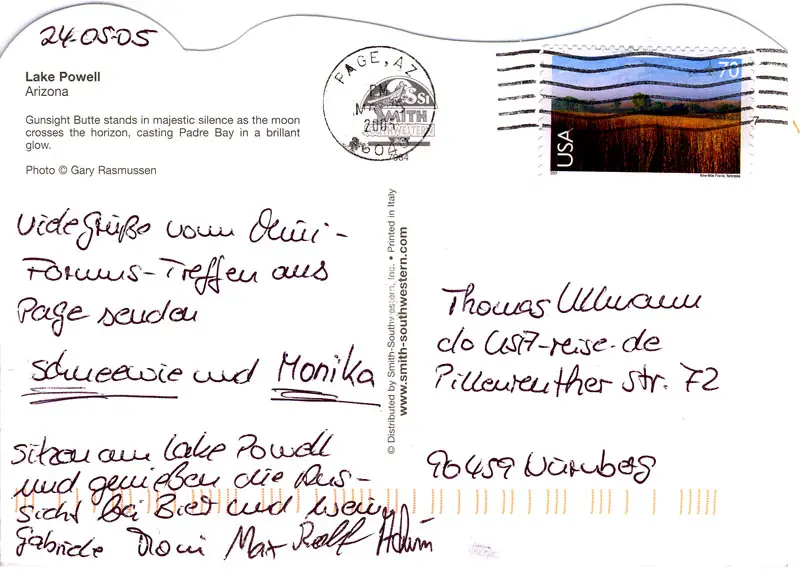 24-05-05
Lake Powell
Arizona
Gunsight Butte stands in majestic silence as the moon
crosses the horizon, casting Padre Bay in a brillant
glow.
Photo © Gary Rasmussen
PAGE, AZ
PM
2005
8604
SSI
SMITH
SOUTHWESTERN
7984
70
USA
Viele Grüße vom Mini-
Forums-Treffen aus
Page senden
Schneewie und Monika
Sitzen am Lake Powell
und genießen die Aus-
sicht bei Bier und Wein
Gabriele Roni Max Ralf
© Distributed by Smith-Southwestern, Inc. • Printed in Italy
www.smith-southwestern.com
Thomas Ullmann
c/o USA-reise.de
Pillenreuther Str. 72
90459 Nürnberg